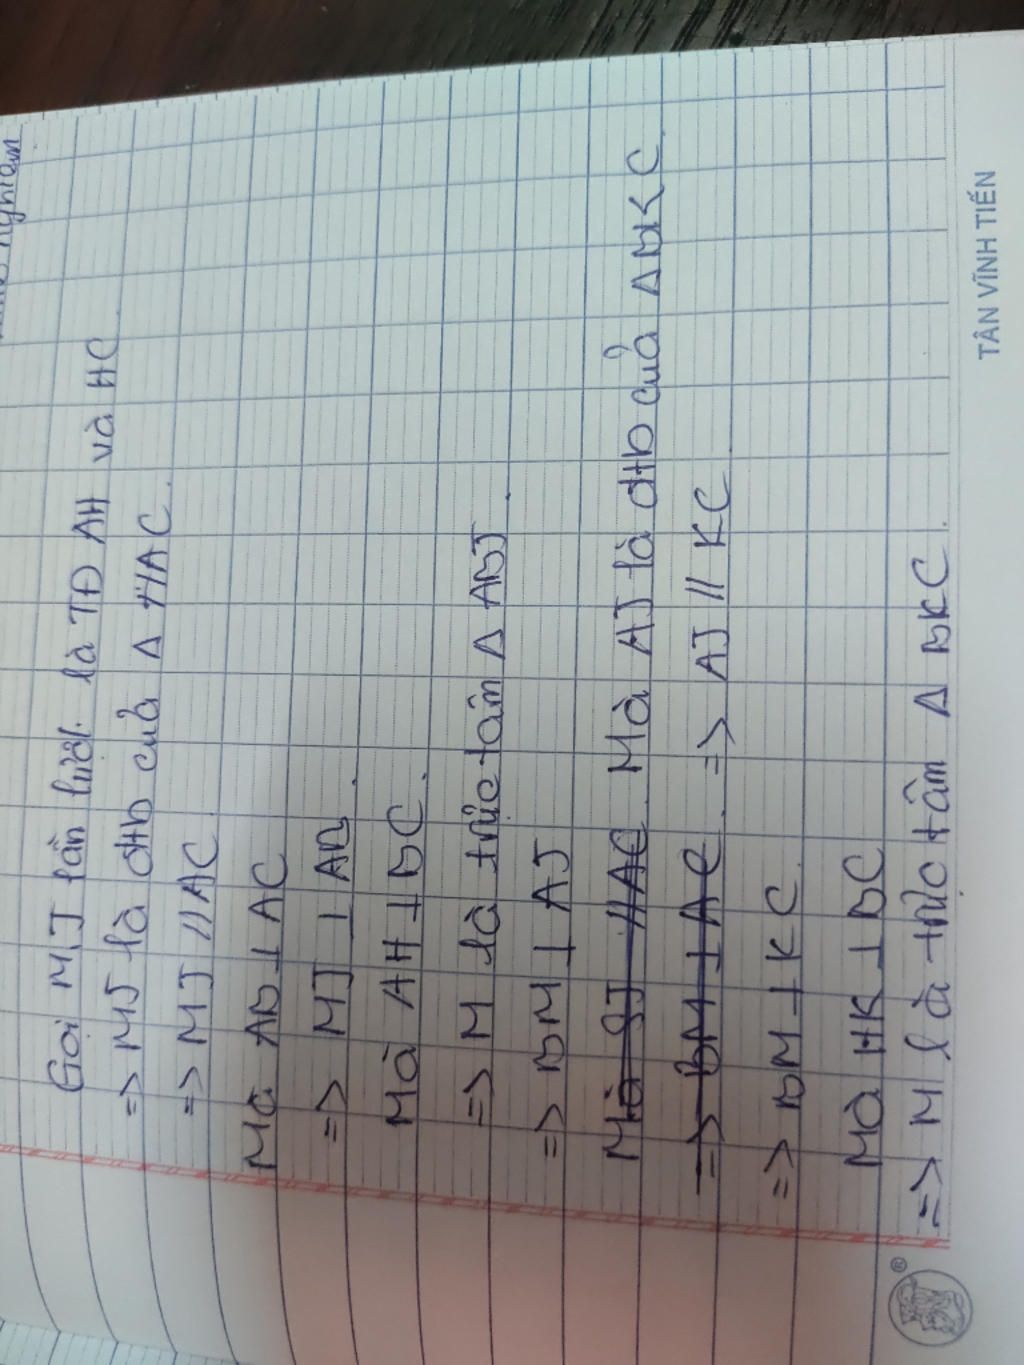 nghiệm
Gọi M, J lần lượt là TĐ AH và HC
=> MJ là đtb của Δ HAC.
=> MJ // AC
Mà AB ⊥ AC
=> MJ ⊥ AB.
Mà AH ⊥ BC.
=> M là trực tâm Δ ABJ.
=> BM ⊥ AJ
Mà SJ // AC. Mà AJ là đtb của Δ BKC
=> BM ⊥ AC. => AJ // KC
=> BM ⊥ KC.
Mà HK ⊥ BC
=> M là trực tâm Δ BKC.
®
TÂN VĨNH TIẾN